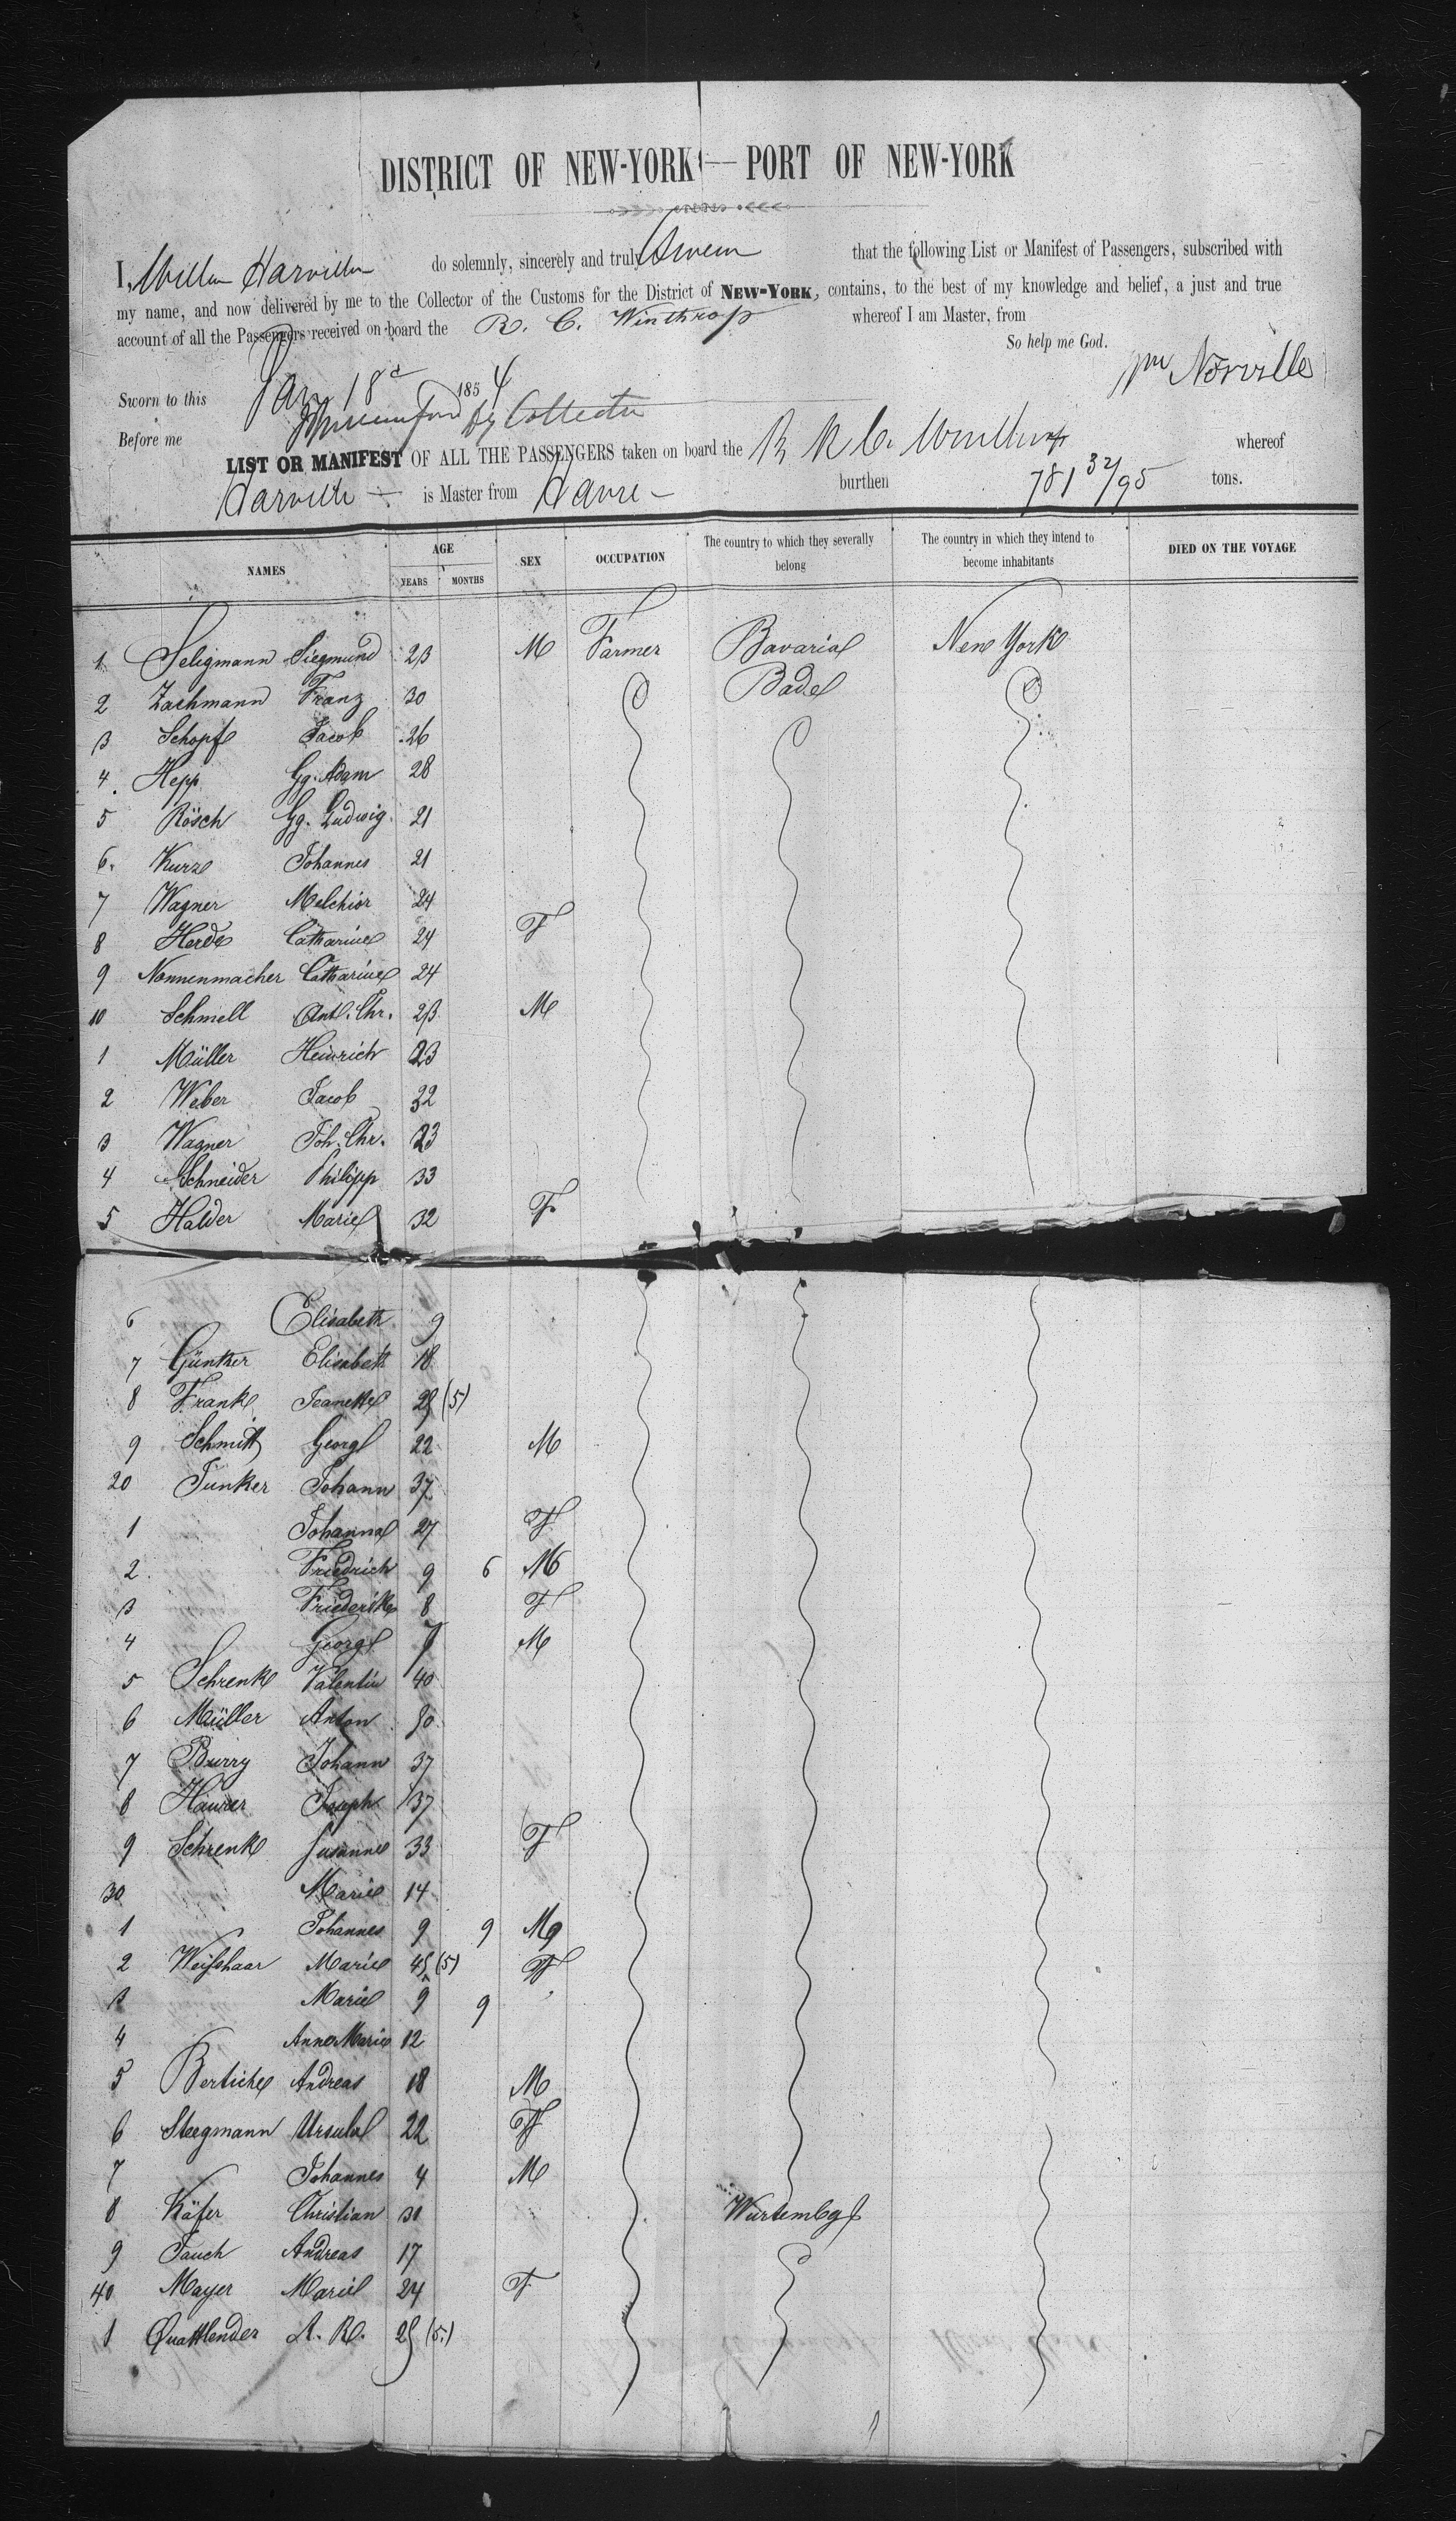 DISTRICT OF NEW-YORK — PORT OF NEW-YORK
I, Willm Harville do solemnly, sincerely and truly Swear that the following List or Manifest of Passengers, subscribed with
my name, and now delivered by me to the Collector of the Customs for the District of NEW-YORK, contains, to the best of my knowledge and belief, a just and true
account of all the Passengers received on board the R. C. Winthrop whereof I am Master, from
So help me God.
Wm Norville
Sworn to this Jan 18d 1854
Before me Dy Collector
LIST OR MANIFEST OF ALL THE PASSENGERS taken on board the R C. Winthrop whereof
Harville is Master from Havre burthen 781 32/95 tons.
NAMES AGE YEARS MONTHS SEX OCCUPATION The country to which they severally belong The country in which they intend to become inhabitants DIED ON THE VOYAGE
1 Seligmann Siegmund 23 M Farmer Bavaria New York
2 Zachmann Franz 30 Bade
3 Schopf Jacob 26
4. Hepp Gg. Adam 28
5 Rösch Gg. Ludwig 21
6. Kurz Johannes 21
7 Wagner Melchior 24
8 Herde Catharine 24 F
9 Nonnenmacher Catharine 24
10 Schmell Ant. Chr. 23 M
1 Müller Heinrich 23
2 Weber Jacob 32
3 Wagner Joh. Chr. 23
4 Schneider Philipp 33
5 Halder Marie 32 F
6 Elisabeth 9
7 Günther Elisabeth 18
8 Frank Jeanette 25 (5)
9 Schmitt Georg 22 M
20 Junker Johann 37
1 Johanna 27 F
2. Friedrich 9 6 M
3 Friederike 8 F
4 Georg 7 M
5 Schrenk Valentin 40
6 Müller Anton 50
7 Burry Johann 37
8 Haurer Joseph 37
9 Schrenk Susanne 33 F
30 Marie 14
1 Johannes 9 9 M
2 Weißhaar Marie 45 (5) F
3 Marie 9 9
4 Anna Marie 12
5 Bertiche Andreas 18 M
6 Steegmann Ursula 22 F
7 Johannes 4 M
8 Käfer Christian 30 Wurtembg
9 Jauch Andreas 17
40 Mayer Marie 24 F
1 Quattlender A. R. 25 (5.)